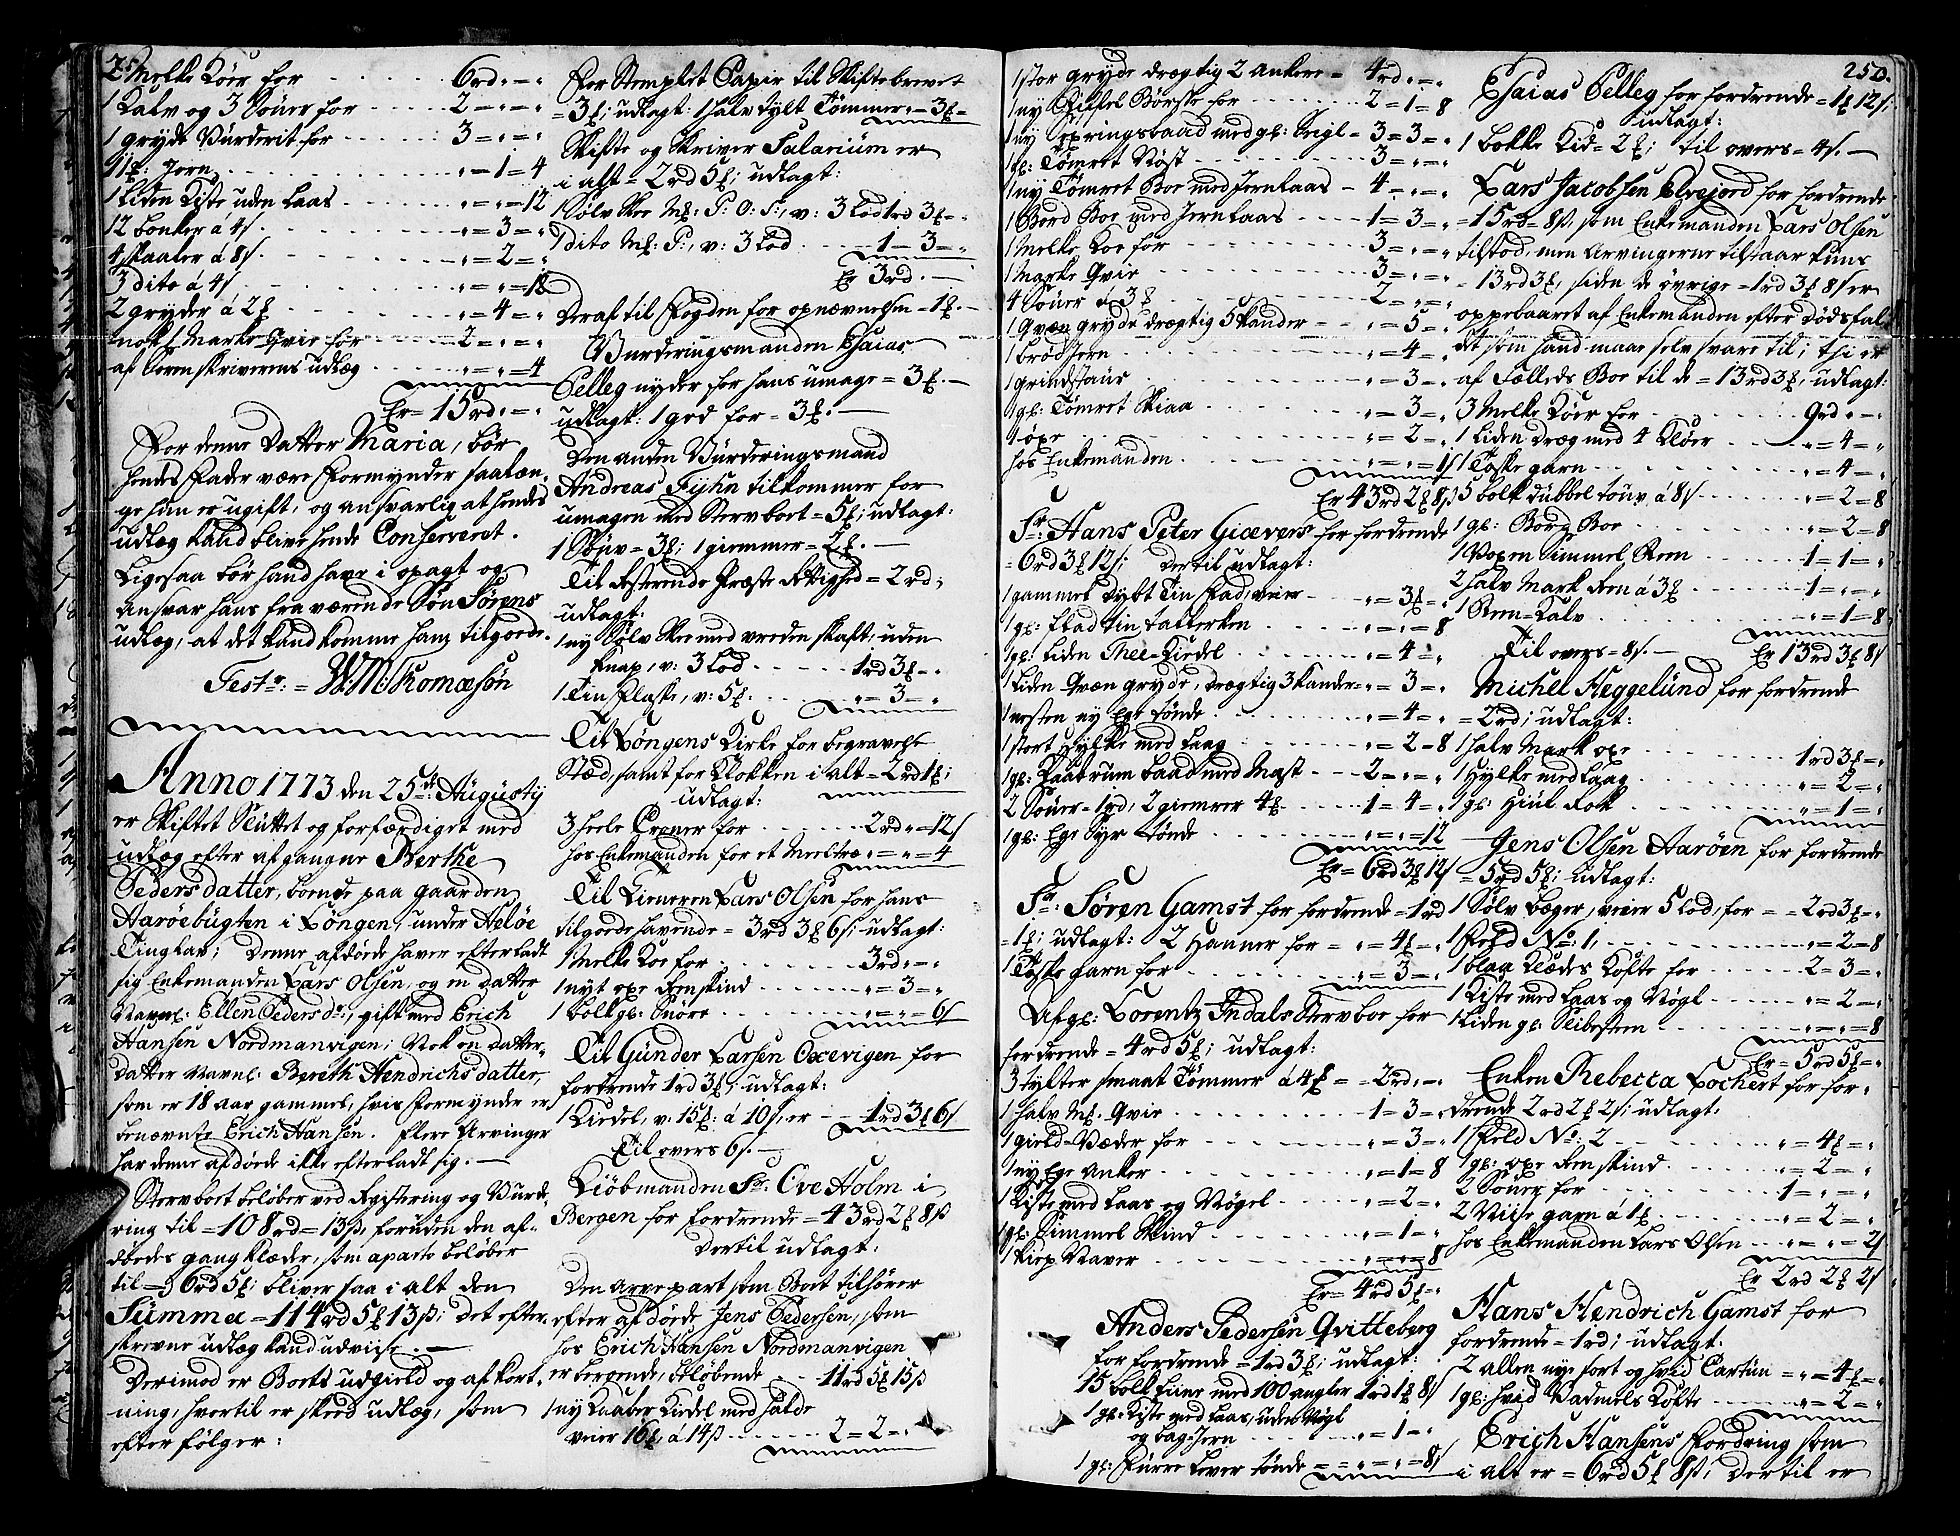 2 Melke Köer for - - - - - 6rd„-„
1 Kalv og 3 Söuer for - - - - 2=„=„
1 gryde Vurderit for - - - - 3=„=„
11 ℔: Jern - - - - „=1=4
1 liden Kiste uden Laas - - - - „=„=12
12 bonker á 4 s - - - - „=3=„
4 skaaler á 8 s - - - - „=2=„
3 dito á 4 s - - - - „=„=12
2 gryder á 2 ℔ - - - - „=4=„
nok 1 Marke Qvie for - - - - 2=„=„
af Sorenskriverens udlæg - - - - „=„=4
Er=15rd„=„
For denne Datter Maria, bör
hendes Fader være Formynder saalæn-
ge han er ugift, og ansvarlig at hendes
udlæg kand blive hende Conserveret.
Ligesaa bör hand have i opagt og
ansvar hans fraværende Sön Sörens
udlæg, at det kand komme ham tilgode.
Testr: = W: M: Thomesön
Anno 1773 den 25de: Augustij
er Skiftet Sluttet og forfærdiget med
udlæg efter afgangne Berthe
Peders datter, boende paa gaarden
Aaröebugten i Löngen, under Helöe
Tinglav; Denne afdöde haver efterladt
sig Enkemanden Lars Olsen, og en datter
Navnl: Ellen Pedersdr:, gift med Erich
Hansen Nordmanvigen; Nok en datter-
datter Navnl: Bereth Hendrichs datter,
som er 18 aar gammel, hvis Formynder er
benævnte Erich Hansen. Flere Arvinger
har denne afdöde ikke efterladt sig.
Stervboet belöber ved Registering og Vurde-
ring til =108rd=13s, foruden den af-
dödes gangklæder, som aparte belöber
til =6rd5℔; bliver saa i alt den
Summa =114rd5℔13s; Det efter-
skrevne udlæg kand udviise.
Derimod er Boets udgield og afkort-
ning, hvortil er skeed udlæg, som
efter fölger:
For Stemplet Papir til Skiftebrevet
=3℔; udlagt: 1 halv tylt Tömmer„=3℔=
Skifte og Skriver Salarium er
i alt=2rd5℔; udlagt:
1 Sölv Skee M℔: P: O: S:, v: 3 Lod 1rd3℔-„
1 dito M℔: P:, v: 3 Lod - - - - 1-3=„
Er 3rd.-
Deraf til Fogden for opnævnelsen=1℔.
Vurderingsmanden Esaias
Pelleg nyder for hans umage=3℔.
udlagt: 1 grd for=3℔.
Den anden Vurderingsmand
Andreas Fyhn tilkommer for
umagen med Stervboet=5℔; udlagt:
1 Söuv=3℔; 1 giemmer=2℔.
Til Resterende Præste Rettighed=2rd„
udlagt:
1 ny Sölv Skee med vreden skaft, uden
Knap, v: 3 Lod - - - - 1rd3℔-„
1 Tin Flaske, v: 5℔ - - - - „=3=„
Til Löngens Kirke for begravelse
Stæd, samt for Klokken i alt=2rd1℔;
udlagt:
3 heele Croner for - - - - 2rd„=12s
hos Enkemanden for et Meeltræ„=„=4
Til Tieneren Lars Olsen for hans
tilgodehavende=3rd3℔6s; udlagt:
1 Melke Koe for - - - - 3rd„-„
1 nyt oxe Renskind - - - - „=3=„
1 bolk gl: Snöre - - - - „=„=6s
Til Gunder Larsen Oxevigen for
fordrende 1rd3℔; udlagt:
1 Kiedel, v: 15℔: á 10s, er - - 1rd3℔6s
Til overs 6s.
Kiöbmanden Sr: Ove Holm i
Bergen for fordrende=43rd2℔8s
dertil udlagt:
Den arvepart som Boet tilhörer
efter afdöde Jens Pedersen, som
hos Erich Hansen Nordmanvigen
er beroende, belöbende - - 11rd5℔15s
1 ny Kaaber Kiedel med halde
veier 16℔, á 14s - - - - 2=2=„
250.
1 stor gryde drægtig 2 Ankere= 4rd„=„
1 ny Riffel Börse for - - - - 2=1=8
1 ny Færingsbaad med gl: Seigl= 3=3=„
1 gl: Tömret Nöst - - - - 3=„=„
1 ny Tömret Boe med Jernlaas - 4=„=„
1 Bord Boe med Jernlaas - - - 1=3=„
1 Melke Koe for - - - - 3=„=„
1 Marke Qvie - - - - 3=„=„
4 Söuer á 3℔ - - - - 2=„=„
1 Qvæn gryde drægtig 5 Kander - - „=5=„
1 brödJern - - - - „=4=„
1 grindstaur - - - - „=3=„
1 gl: Tömret Skiaa - - - - „=3=„
1 öxe - - - - „=2=„
hos Enkemanden - - - - „=„=1s
Er 43rd2℔8s
Sr: Hans Peter Giæver for fordrende
=6rd3℔12s; Dertil udlagt:
1 gammel dybt Tin Fad, veier - - „=3℔=„
1 gl: flad tin tallerken - - - - „=„=8
1 gl: liden Thee-Kiedel - - - - „=4=„
1 liden Qvæn gryde, drægtig 3 Kander=„=3=„
1 nesten ny Ege tönde - - - - „=4=„
1 stort Hylke med laag - - - - „=2=8
1 gl: Faat rum baad med Mast - - 2=„=„
2 Söuer=1rd, 2 giemrer 4℔ - - 1=4=„
1 gl: Ege Syr tönde - - - - „=„=12
Er=6rd3℔12s
Sr: Sören Gamst for fordrende=1rd
=1℔; udlagt: 2 Hanner for=„=4℔=„
1 Toske garn for - - - - „=3=„
Afgl: Lorentz Indals Stervboe for
fordrende=4rd5℔; udlagt:
3 tylter smaat Tömmer á 4℔==2rd„=„
1 halv M℔. Qvie - - - - 1=3=„
1 gield-Væder for - - - - „=3=„
1 ny Ege anker - - - - „=1=8
1 Kiste med Laas og Nögel - - - „=2=„
1 gl: Simmel Skind - - - - „=1=„
1 kiep Naver - - - - „=„=8
Er=4rd5℔=„
Anders Pedersen Qvitteberg
for fordrende=1rd3℔; udlagt:
15 bolk Liner med 100 angler 1rd1℔8s
1 gl: Kiste med Laas, uden Nögl
og bag-Jern - - - - „=1=„
1 gl: Furre Lever tönde=„=„=8s
Esaias Pelleg for fordrende=1℔12s;
udlagt:
1 bokke Kid=2℔; til overs=4s.
Lars Jacobsen Elvejord for fordrende
=15rd=8s, som Enkemanden Lars Olsen
tilstod, men Arvingerne tilstaar kuns
=13rd3℔, siden de övrige=1rd3℔8s er
oppebaaret af Enkemanden efter Dödsfal-
det som hand maae selv svare til; thi er
af Fælleds Boe til de=13rd3℔, udlagt:
3 Melke Köer for - - - - 9rd„=„
1 liden dræg med 4 Klöer - - - „=4=„
1 Toske garn - - - - „=4=„
5 bolk dubbel touv, á 8s - - - „=2=8
1 gl: Borg Boe - - - - „=2=8
1 Voxen Simmel Reen - - - 1=1=„
2 halv Mark Ren á 3℔ - - - 1=„=„
1 Reen-Kalv - - - - „=1=8
Til overs=8s.- Er 13rd3℔8s
Michel Heggelund for fordrende
=2rd; udlagt:
1 halv Mark oxe - - - - 1rd3℔=„
1 Hylke med Laag - - - - „=2=„
1 gl: Hiul Rok - - - - „=1=„
Jens Olsen Aaröen for fordrende
=5rd5℔; udlagt:
1 Sölv bæger, veier 5 Lod, for==2rd3℔=„
1 Feld No: 1, - - - - „=2=8
1 blaa Klædes Kofte for - - - 2=3=„
1 Kiste med Laas og Nögl - - - „=2=„
1 liden gl: Slibesteen - - - - „=„=8
Er=5rd5℔=„
Enken Rebecca Lochert for for-
drende 2rd2℔2s; udlagt:
1 Feld No: 2 - - - - „=4℔=„
1 gl: oxe Renskind - - - - „=2=„
2 Söuer for - - - - 1=„=„
2 Viise garn á 1℔ - - - - „=2=„
hos Enkemanden Lars Olsen - - „=„=2s
Er 2rd 2℔ 2s
Hans Hendrich Gamst for
fordrende=1rd; udlagt:
2 allen ny sort og hvid Cartun=„=4℔=„
1 gl: hvid Vadmels Kofte - - - „=2=„
Erich Hansens Fordring som
i alt er=6rd5℔8s; Dertil er